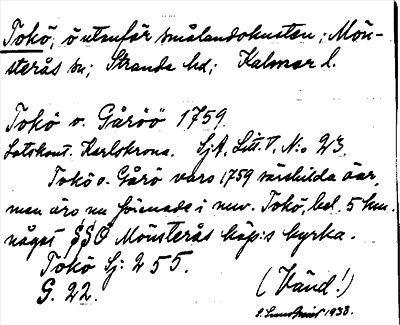 Tokö, ö utanför smålandskusten; Mön-
sterås sn; Stranda hd; Kalmar l.
Tokö o. Gåröö 1759
Lotskont. Karlskrona. SjA, Litt. V. N:o 23.
Tokö o. Gårö voro 1759 särskilda öar,
men äro nu förenade i nuv. Tokö, bel. 5 km.
något SSO Mönsterås köp:s kyrka.
Tokö Sj: 255.
G. 22.
(Vänd!)
1938.